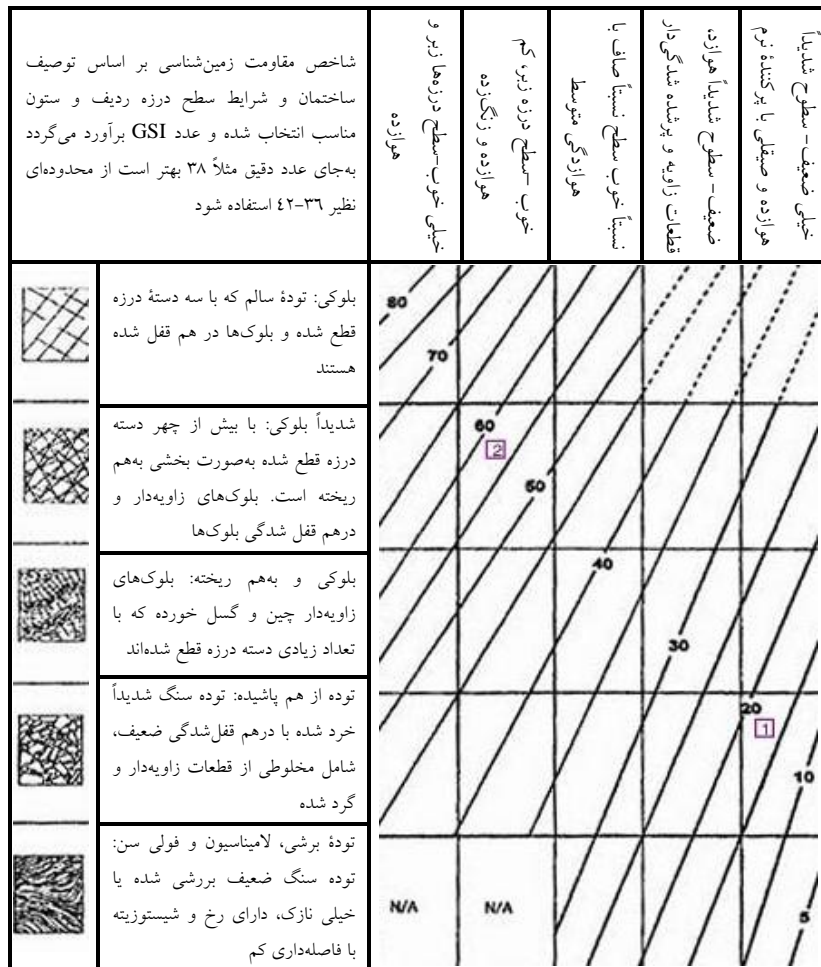 شاخص مقاومت زمین‌شناسی بر اساس توصیف
ساختمان و شرایط سطح درزه ردیف و ستون
مناسب انتخاب شده و عدد GSI برآورد می‌گردد
به‌جای عدد دقیق مثلاً ۳۸ بهتر است از محدوده‌ای
نظیر ۳۶-۴۲ استفاده شود
خیلی خوب-سطح درزه‌ها زبر و
هوازده
خوب -سطح درزه زبر، کم
هوازده و زنگ‌زده
نسبتاً خوب سطح نسبتاً صاف با
هوازدگی متوسط
ضعیف- سطوح شدیداً هوازد،
قطعات زاویه و پرشده شدگی‌دار
خیلی ضعیف- سطوح شدیداً
هوازده و صیقلی با پرکنندهٔ نرم
بلوکی: تودهٔ سالم که با سه دستهٔ درزه
قطع شده و بلوک‌ها در هم قفل شده
هستند
شدیداً بلوکی: با بیش از چهر دسته
درزه قطع شده به‌صورت بخشی به‌هم
ریخته است. بلوک‌های زاویه‌دار و
درهم قفل شدگی بلوک‌ها
بلوکی و به‌هم ریخته: بلوک‌های
زاویه‌دار چین و گسل خورده که با
تعداد زیادی دسته درزه قطع شده‌اند
توده از هم پاشیده: توده سنگ شدیداً
خرد شده با درهم قفل‌شدگی ضعیف،
شامل مخلوطی از قطعات زاویه‌دار و
گرد شده
تودهٔ برشی، لامیناسیون و فولی سن:
توده سنگ ضعیف بررشی شده یا
خیلی نازک، دارای رخ و شیستوزیته
با فاصله‌داری کم
80
70
60
2
50
40
30
20
1
10
N/A
N/A
5